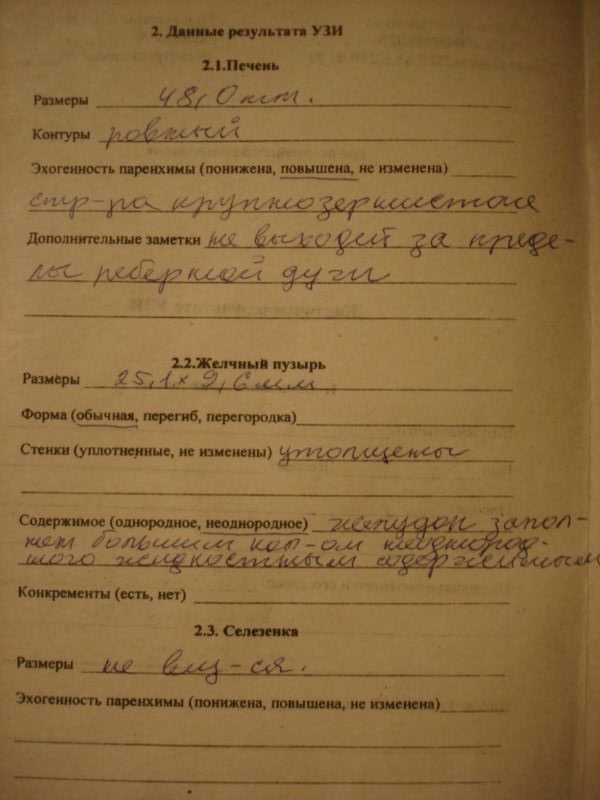 2. Данные результата УЗИ
2.1.Печень
Размеры 48,0 мм.
Контуры ровный
Эхогенность паренхимы (понижена, повышена, не изменена)
стр-ра крупнозернистая
Дополнительные заметки не выходит за преде-
лы реберной дуги
2.2.Желчный пузырь
Размеры 25,1 x 9,6 мм
Форма (обычная, перегиб, перегородка)
Стенки (уплотненные, не изменены) утолщены
Содержимое (однородное, неоднородное) желудок запол-
нен большим кол-ом неоднород-
ного жидкостным содержимым
Конкременты (есть, нет)
2.3. Селезенка
Размеры не виз-ся.
Эхогенность паренхимы (понижена, повышена, не изменена)